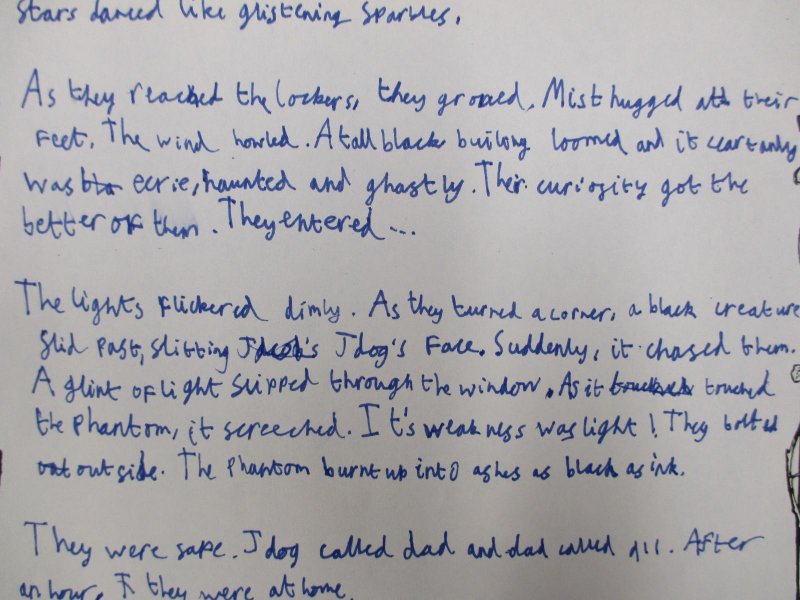 stars danced like glistening sparkles.
As they reached the lockers, they groaned. Mist hugged at their
feet. The wind howled. A tall black builing loomed and it
was eerie, haunted and ghastly. Their curiosity got the
better of them. They entered...
The lights flickered dimly. As they turned a corner, a black creature
slid past, slitting Jacob's Jdog's face. Suddenly, it chased them.
A glint of light slipped through the window. As it touched
the phantom, it screeched. It's weakness was light! They bolted
out outside. The phantom burnt up into ashes as black as ink.
They were safe. Jdog called dad and dad called 911. After
an hour, they were at home.